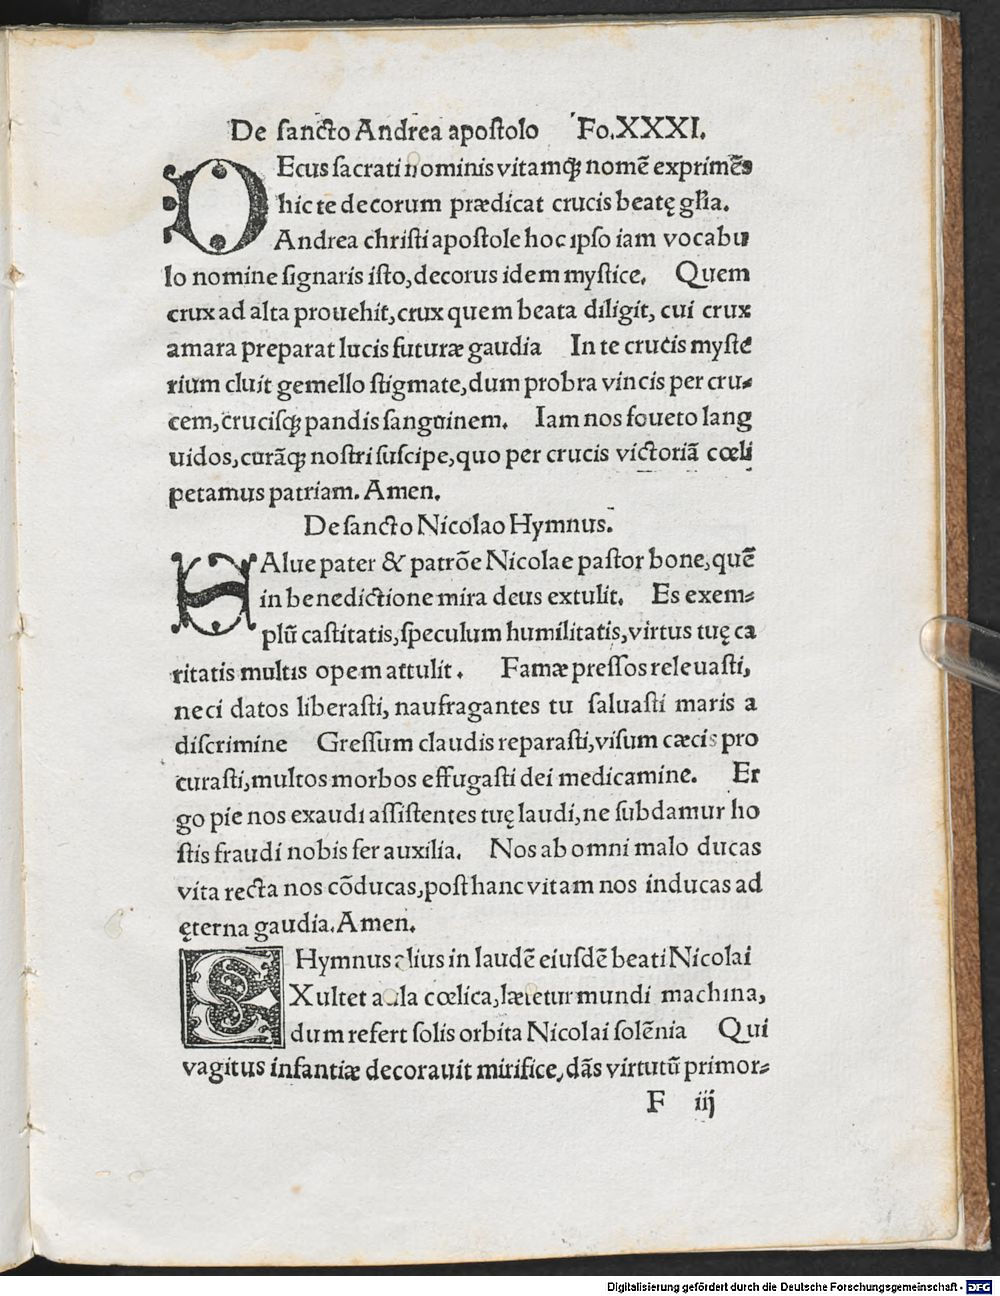 De sancto Andrea apostolo Fo.XXXI.
DEcus sacrati nominis vitamq̃ nomẽ exprimẽs
hic te decorum prædicat crucis beatę gl̃ia.
Andrea christi apostole hoc ipso iam vocabu
lo nomine signaris isto, decorus idem mystice. Quem
crux ad alta prouehit, crux quem beata diligit, cui crux
amara preparat lucis futuræ gaudia In te crucis myste
rium cluit gemello stigmate, dum probra vincis per cru⸗
cem, crucisq̃ pandis sanguinem. Iam nos foueto lang
uidos, curãq̃ nostri suscipe, quo per crucis victoriã cœli
petamus patriam. Amen.
De sancto Nicolao Hymnus.
SAlue pater & patrõe Nicolae pastor bone, quẽ
in benedictione mira deus extulit. Es exem⸗
plũ castitatis, speculum humilitatis, virtus tuę ca
ritatis multis opem attulit. Famæ pressos releuasti,
neci datos liberasti, naufragantes tu saluasti maris a
discrimine Gressum claudis reparasti, visum cæcis pro
curasti, multos morbos effugasti dei medicamine. Er
go pie nos exaudi assistentes tuę laudi, ne subdamur ho
stis fraudi nobis fer auxilia. Nos ab omni malo ducas
vita recta nos cõducas, post hanc vitam nos inducas ad
ęterna gaudia. Amen.
Hymnus alius in laudẽ eiusdẽ beati Nicolai
EXultet aula cœlica, lætetur mundi machina,
dum refert solis orbita Nicolai solẽnia Qui
vagitus infantiæ decorauit mirifice, dãs virtutũ primor⸗
F iij
Digitalisierung gefördert durch die Deutsche Forschungsgemeinschaft - DFG